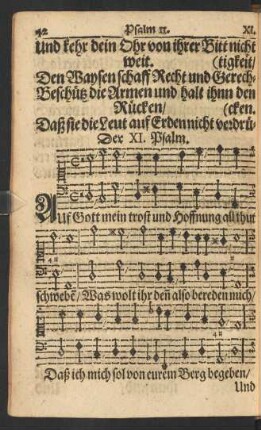 42 Psalm 11. XI.
Und kehr dein Ohr von ihrer Bitt nicht
weit. (tigkeit/
Den Waysen schaff Recht und Gerech-
Beschütz die Armen und halt ihnn den
Rücken/ (cken.
Daß sie die Leut auf Erden nicht verdrü-
Der XI. Psalm.
AUf Gott mein trost und Hoffnung all thut
schwebẽ/ Was wolt ihr deñ also bereden mich/
Daß ich mich sol von eurem Berg begeben/
Und